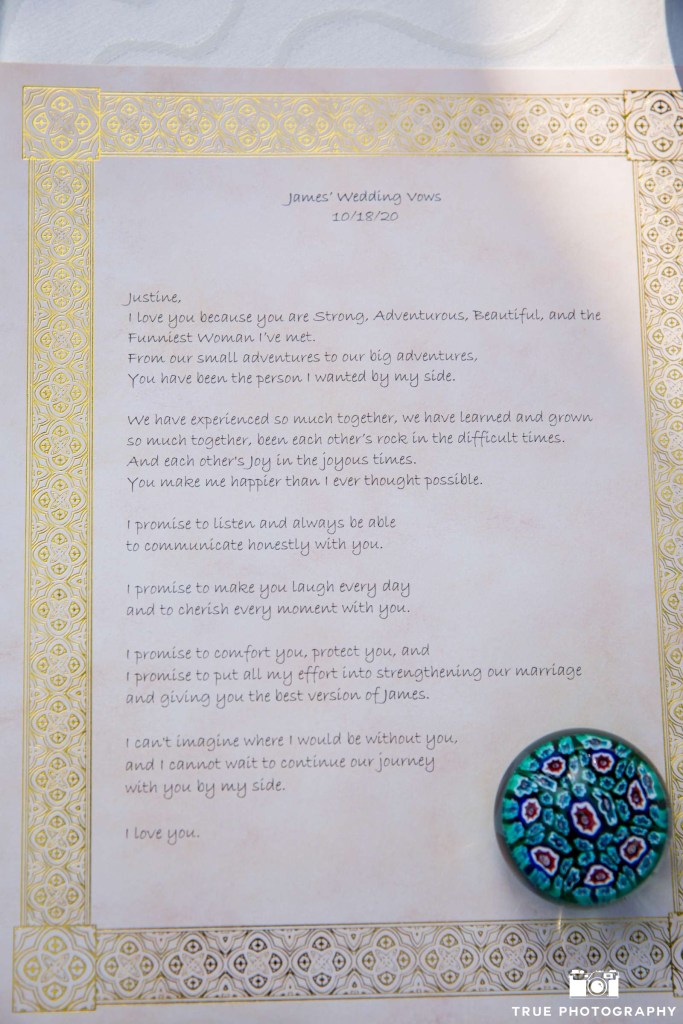 James' Wedding Vows
10/18/20
Justine,
I love you because you are Strong, Adventurous, Beautiful, and the
Funniest Woman I've met.
From our small adventures to our big adventures,
You have been the person I wanted by my side.
We have experienced so much together, we have learned and grown
so much together, been each other's rock in the difficult times.
And each other's Joy in the joyous times.
You make me happier than I ever thought possible.
I promise to listen and always be able
to communicate honestly with you.
I promise to make you laugh every day
and to cherish every moment with you.
I promise to comfort you, protect you, and
I promise to put all my effort into strengthening our marriage
and giving you the best version of James.
I can't imagine where I would be without you,
and I cannot wait to continue our journey
with you by my side.
I love you.
TRUE PHOTOGRAPHY